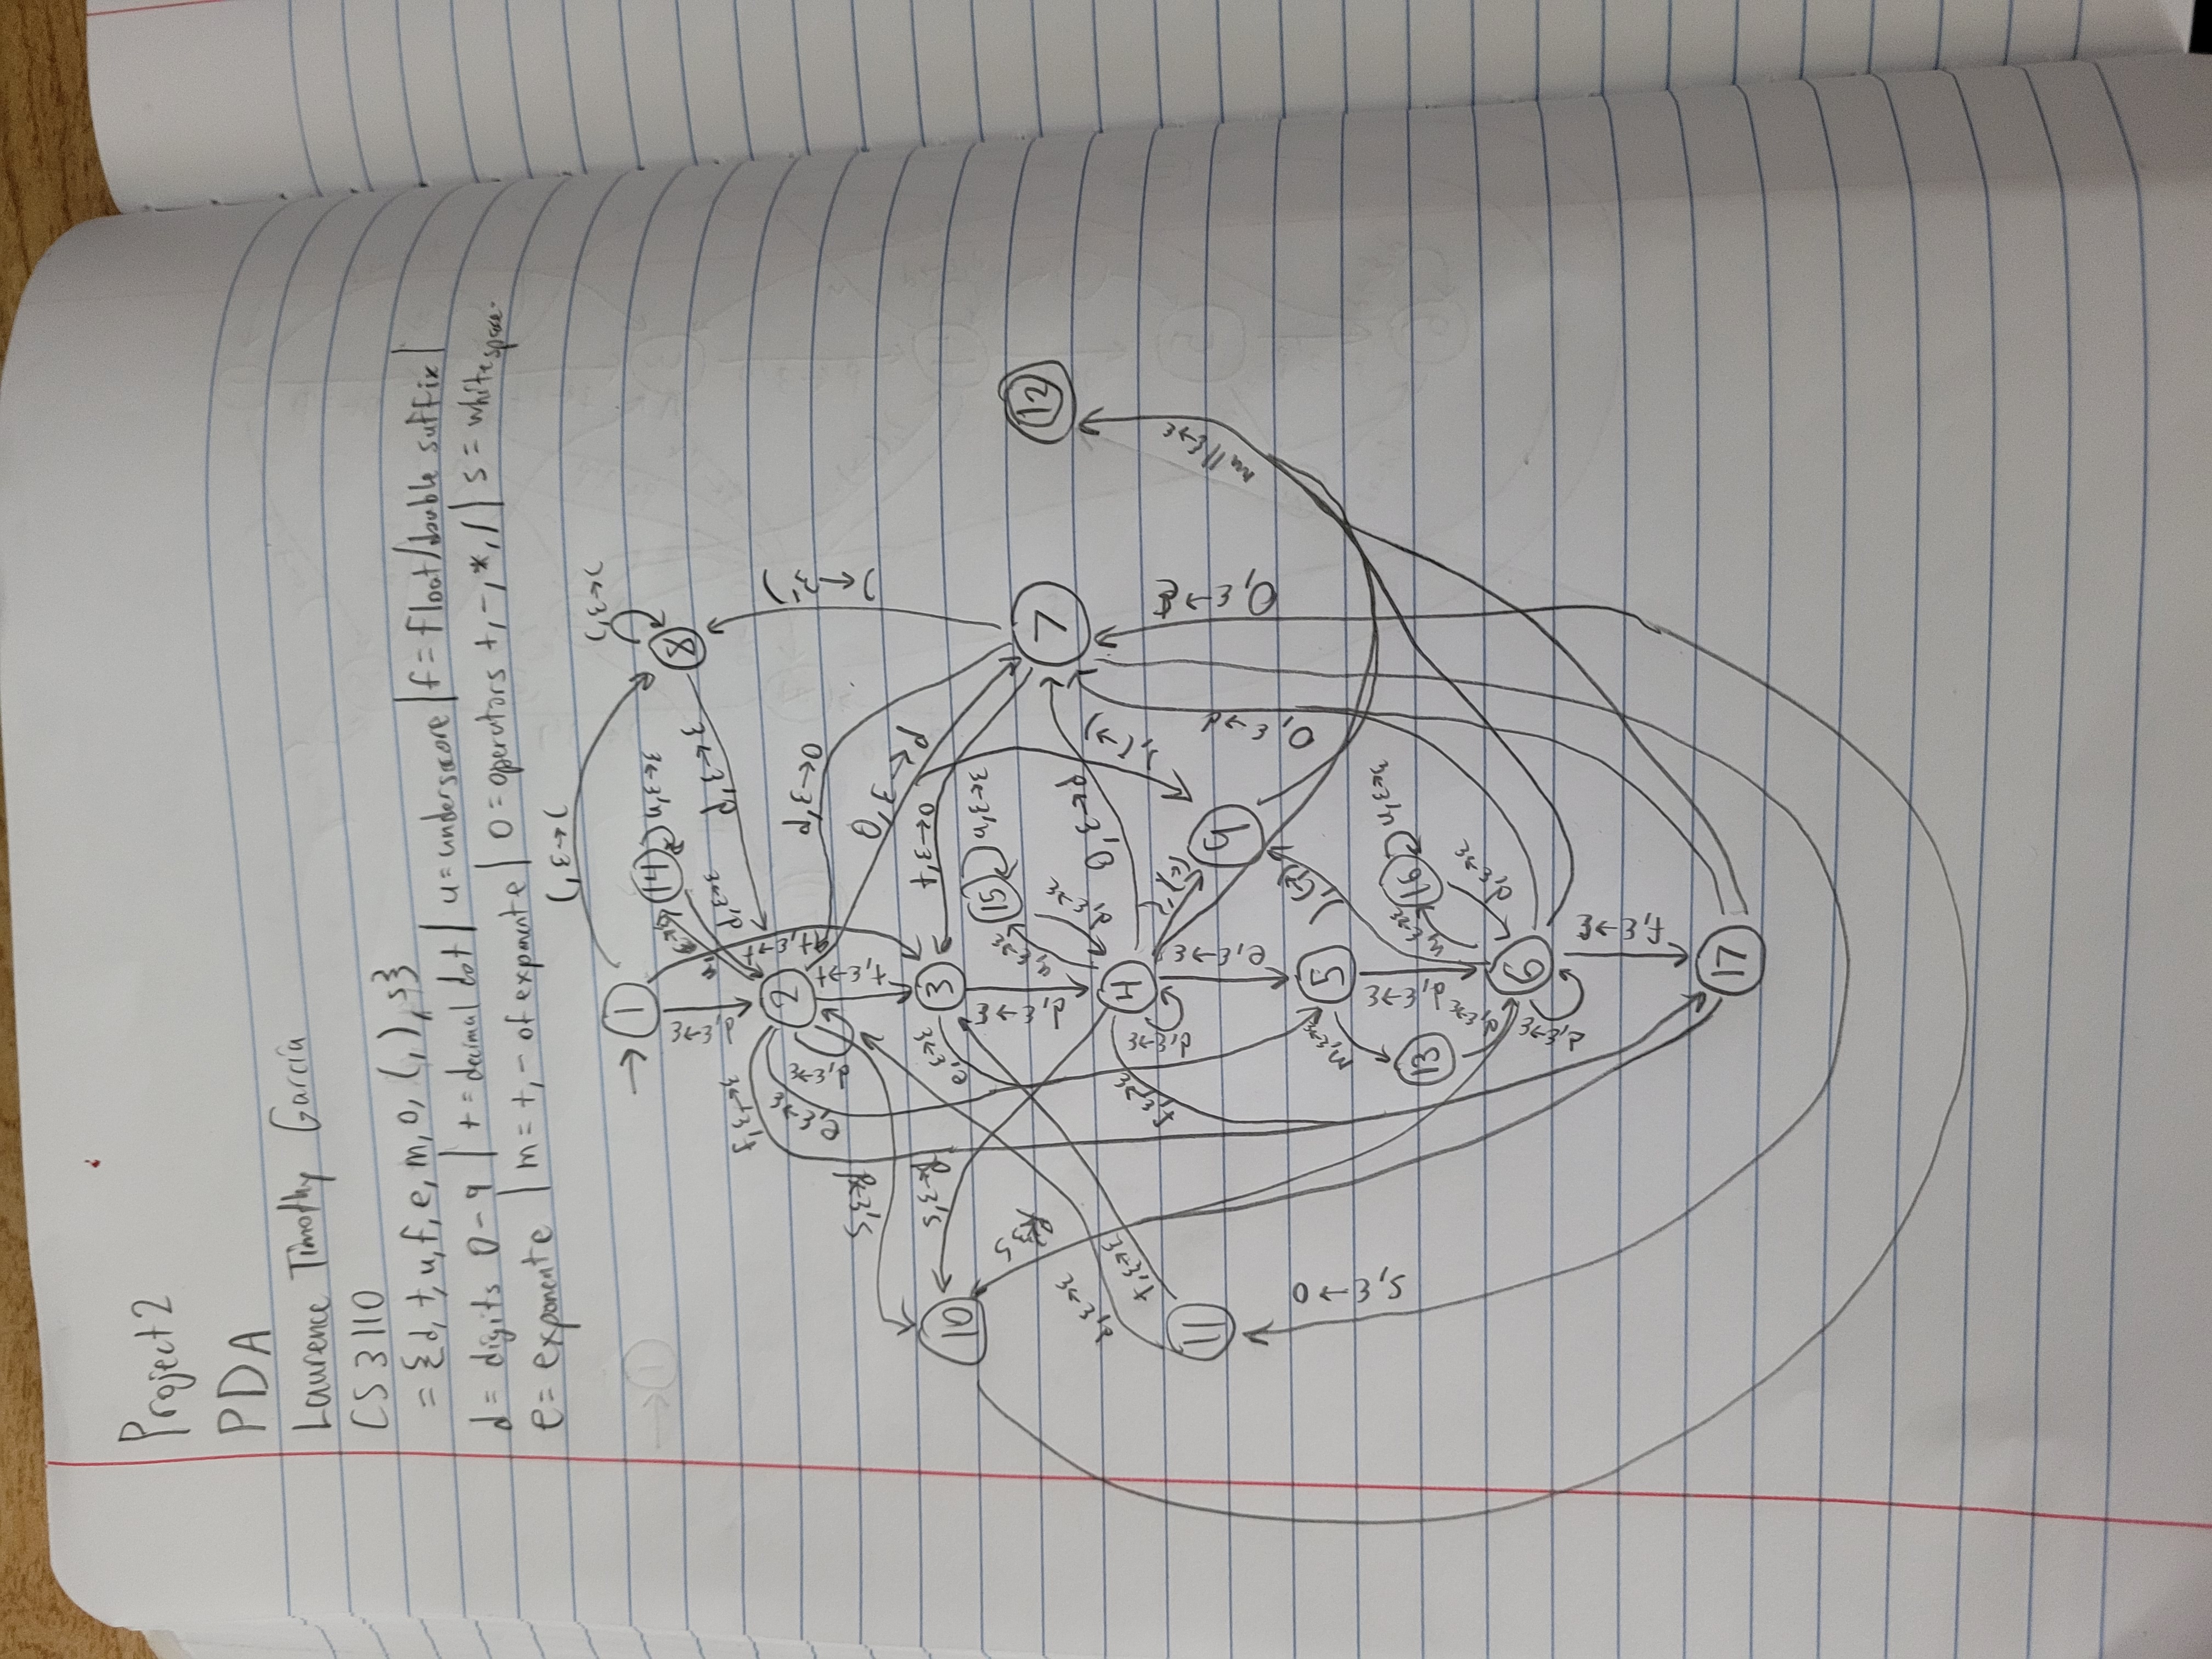 Project 2
PDA
Laurence Timothy Garcia
CS 3110
= {d, t, u, f, e, m, o, (, ), s}
d = digits 0-9 | t = decimal dot | u = underscore | f = float/double suffix |
e = exponente | m = +, - of exponente | O = operators +, -, *, / | s = whitespace
(, ε→)
), ε→(
1
14
u, ε→ε
8
d, ε→ε
d, ε→ε
d, ε→ε
f, ε→ε
2
e, ε→ε
d, ε→ε
t, ε→t
d, ε→o
), ε→(
s, ε→d
O, ε→d
10
s, ε→d
e, ε→ε
3
t, ε→o
15
u, ε→ε
d, ε→ε
u, ε→ε
7
12
d, ε→ε
d, ε→ε
t, ε→ε
f, ε→ε
4
d, ε→ε
O, ε→d
11
e, ε→ε
9
O, ε→d
O, ε→d
null, ε→ε
s, ε→o
m, ε→ε
5
13
d, ε→ε
u, ε→ε
16
u, ε→ε
d, ε→ε
d, ε→ε
6
d, ε→ε
f, ε→ε
17